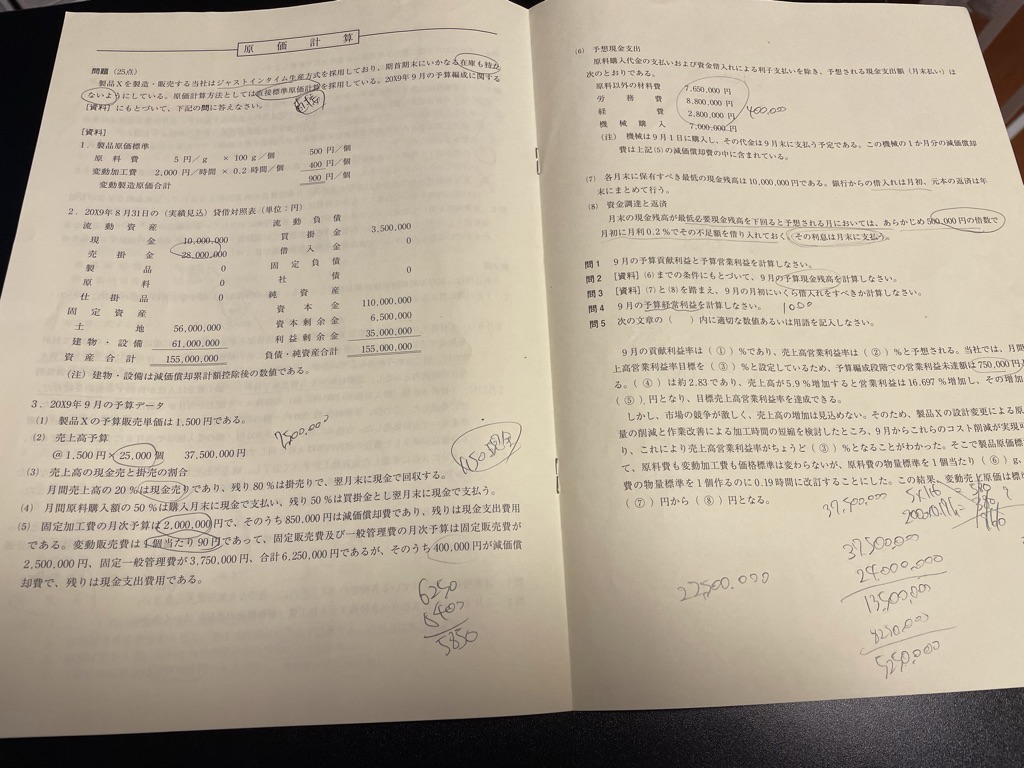 原価計算
問題 (25点)
製品Xを製造・販売する当社はジャストインタイム生産方式を採用しており、期首期末にいかなる在庫も持た
ないようにしている。原価計算方法としては直接標準原価計算を採用している。20X9年9月の予算編成に関する
[資料]にもとづいて、下記の問に答えなさい。
[資料]
1. 製品原価標準
原料費 5円/g × 100g/個 500円/個
変動加工費 2,000円/時間 × 0.2時間/個 400円/個
変動製造原価合計 900円/個
2. 20X9年8月31日の(実績見込)貸借対照表(単位:円)
流動資産 流動負債
現金 10,000,000 買掛金 3,500,000
売掛金 28,000,000 借入金 0
製品 0 固定負債
原料 0 社債 0
仕掛品 0 純資産
固定資産 資本金 110,000,000
土地 56,000,000 資本剰余金 6,500,000
建物・設備 61,000,000 利益剰余金 35,000,000
資産合計 155,000,000 負債・純資産合計 155,000,000
(注) 建物・設備は減価償却累計額控除後の数値である。
3. 20X9年9月の予算データ
(1) 製品Xの予算販売単価は1,500円である。
(2) 売上高予算
@1,500円×25,000個 37,500,000円
7500.000
(3) 売上高の現金売と掛売の割合
月間売上高の20%は現金売りであり、残り80%は掛売りで、翌月末に現金で回収する。
(4) 月間原料購入額の50%は購入月末に現金で支払い、残り50%は買掛金とし翌月末に現金で支払う。
(5) 固定加工費の月次予算は2,000,000円で、そのうち850,000円は減価償却費であり、残りは現金支出費用
である。変動販売費は1個当たり90円であって、固定販売費及び一般管理費の月次予算は固定販売費が
2,500,000円、固定一般管理費が3,750,000円、合計6,250,000円であるが、そのうち400,000円が減価償
却費で、残りは現金支出費用である。
6250
400
5850
(6) 予想現金支出
原料購入代金の支払いおよび資金借入れによる利子支払いを除き、予想される現金支出額(月末払い)は
次のとおりである。
原料以外の材料費 7,650,000円
労務費 8,800,000円
経費 2,800,000円
機械購入 7,000,000円
400,000
(注) 機械は9月1日に購入し、その代金は9月末に支払う予定である。この機械の1か月分の減価償却
費は上記(5)の減価償却費の中に含まれている。
(7) 各月末に保有すべき最低の現金残高は10,000,000円である。銀行からの借入れは月初、元本の返済は年
末にまとめて行う。
(8) 資金調達と返済
月末の現金残高が最低必要現金残高を下回ると予想される月においては、あらかじめ500,000円の倍数で
月初に月利0.2%でその不足額を借り入れておく。その利息は月末に支払う。
問1 9月の予算貢献利益と予算営業利益を計算しなさい。
問2 [資料](6)までの条件にもとづいて、9月の予算現金残高を計算しなさい。
問3 [資料](7)と(8)を踏まえ、9月の月初にいくら借入れをすべきか計算しなさい。
問4 9月の予算経常利益を計算しなさい。
問5 次の文章の( )内に適切な数値あるいは用語を記入しなさい。
9月の貢献利益率は(①)%であり、売上高営業利益率は(②)%と予想される。当社では、月間
上高営業利益率目標を(③)%と設定しているため、予算編成段階での営業利益未達額は750,000円
る。(④)は約2.83であり、売上高が5.9%増加すると営業利益は16.697%増加し、その増加
(⑤)円となり、目標売上高営業利益率を達成できる。
しかし、市場の競争が激しく、売上高の増加は見込めない。そのため、製品Xの設計変更による原
量の削減と作業改善による加工時間の短縮を検討したところ、9月からこれらのコスト削減が実現
り、これにより売上高営業利益率がちょうど(③)%となることがわかった。そこで製品原価標
て、原料費も変動加工費も価格標準は変わらないが、原料費の物量標準を1個当たり(⑥)g、
費の物量標準を1個作るのに0.19時間に改訂することにした。この結果、変動売上原価は標
(⑦)円から(⑧)円となる。
37,500,000
22,500.000
37500000
24000,000
13,500,000
8250,000
5,250,000